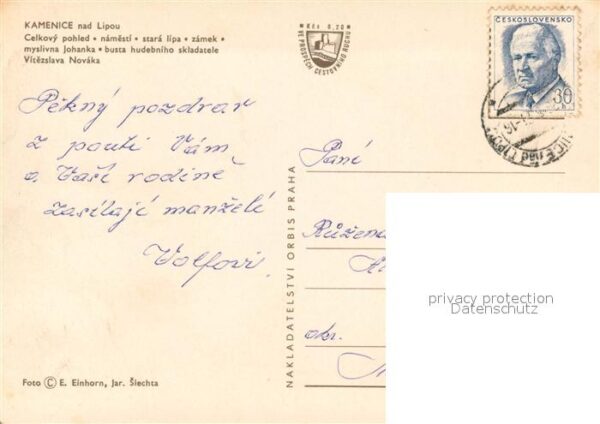 KAMENICE nad Lipou
Celkový pohled • náměstí • stará lípa • zámek •
myslivna Johanka • busta hudebního skladatele
Vítězslava Nováka
Kčs 0,20
VE PROSPĚCH CESTOVNÍHO RUCHU
ČESKOSLOVENSKO
30
h
NICE nad LIPOU
Pěkný pozdrav
z pouti Vám
a Vaší rodině
zasílají manželé
Wolfovi.
NAKLADATELSTVÍ ORBIS PRAHA
Paní
Růžena
okr.
privacy protection
Datenschutz
Foto © E. Einhorn, Jar. Šlechta